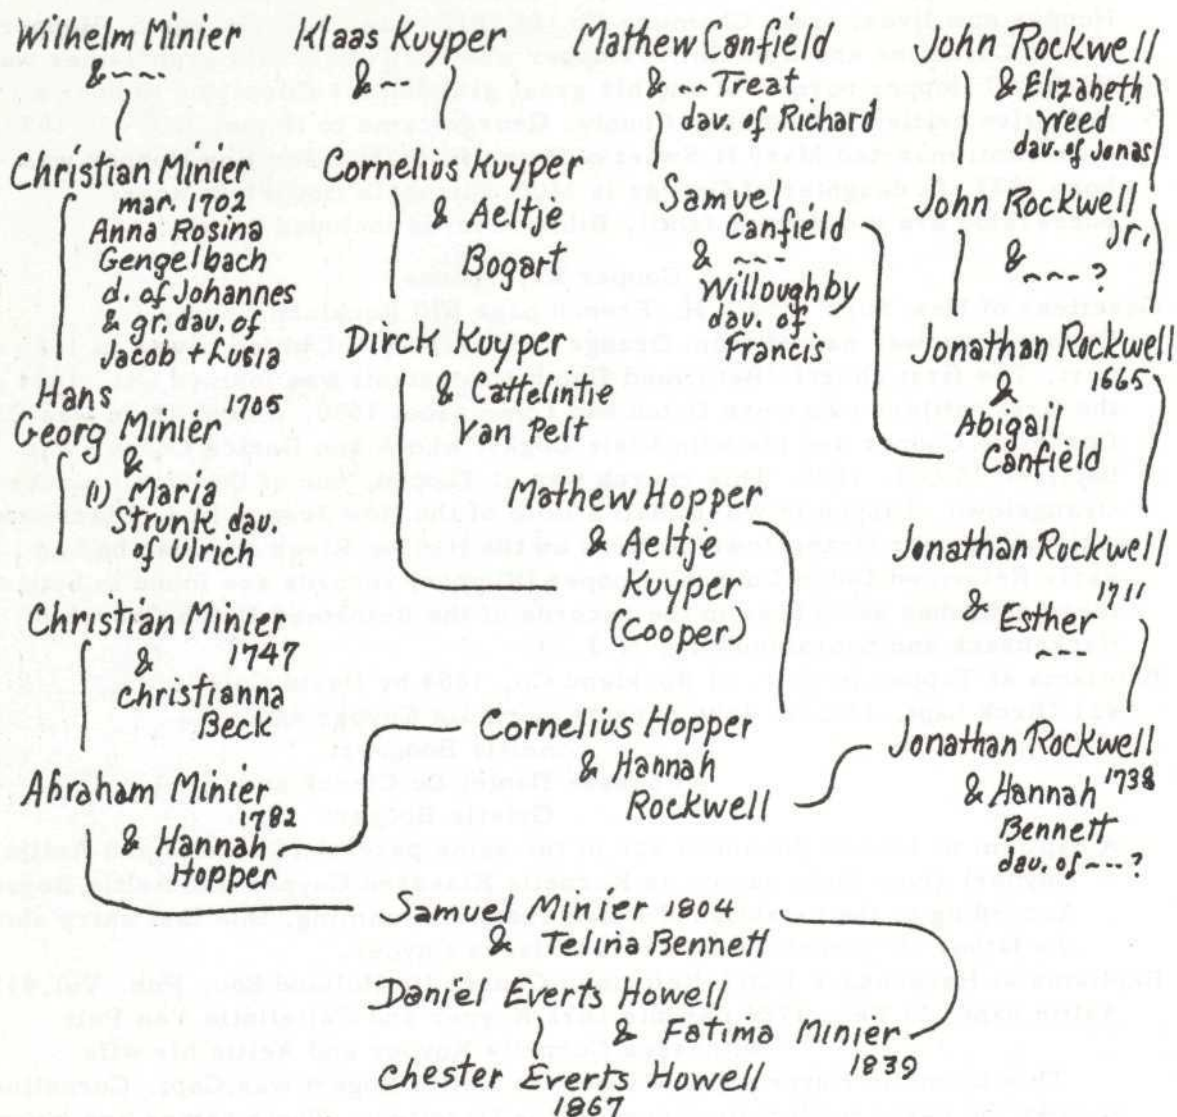 Wilhelm Minier
& ~~~
Christian Minier
mar. 1702
Anna Rosina
Gengelbach
d. of Johannes
& gr. dau. of
Jacob + Lusia
Hans 1705
Georg Minier
&
(1) Maria
Strunk dau.
of Ulrich
Christian Minier
& 1747
Christianna
Beck
Abraham Minier
1782
& Hannah
Hopper
Klaas Kuyper
& ~~~
Cornelius Kuyper
& Aeltje
Bogart
Dirck Kuyper
& Cattelintie
Van Pelt
Mathew Hopper
& Aeltje
Kuyper
(Cooper)
Cornelius Hopper
& Hannah
Rockwell
Mathew Canfield
& ~~ Treat
dau. of Richard
Samuel
Canfield
& ~~~
Willoughby
dau. of
Francis
John Rockwell
& Elizabeth
Weed
dau. of Jonas
John Rockwell
Jr.
& ~~~?
Jonathan Rockwell
& 1665
Abigail
Canfield
Jonathan Rockwell
1711
& Esther
~~~
Jonathan Rockwell
1738
& Hannah
Bennett
dau. of ~~~?
Samuel Minier 1804
& Telina Bennett
Daniel Everts Howell
& Fatima Minier
1839
Chester Everts Howell
1867